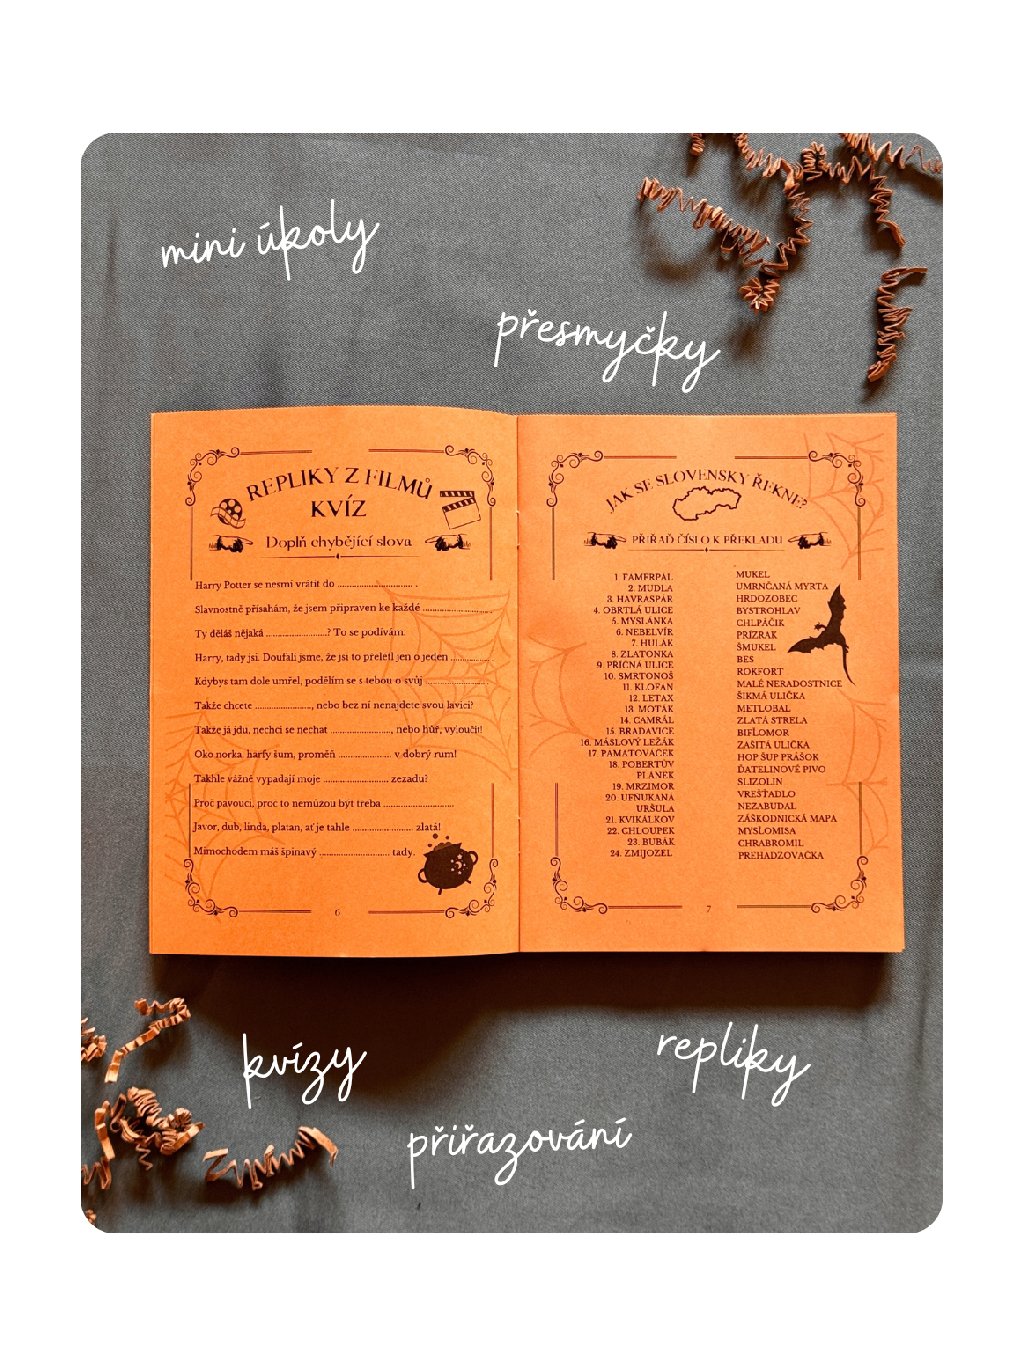 mini úkoly
přesmyčky
REPLIKY Z FILMŮ
KVÍZ
Doplň chybějící slova
Harry Potter se nesmí vrátit do .............................. .
Slavnostně přísahám, že jsem připraven ke každé ..........................
Ty děláš nějaká .......................? To se podívám.
Harry, tady jsi. Doufali jsme, že jsi to přeletl jen o jeden ................
Kdybys tam dole umřel, podělím se s tebou o svůj ........................
Takže chcete ....................., nebo bez ní nenajdete svou lavici?
Takže já jdu, nechci se nechat ......................., nebo hůř, vyloučit!
Oko norka, harfy šum, proměň .................... v dobrý rum!
Takhle vážně vypadají moje ........................ zezadu?
Proč pavouci, proč to nemůžou být třeba ..........................
Javor, dub, linda, platan, ať je tahle ....................... zlatá!
Mimochodem máš špinavý .......................... tady.
6
JAK SE SLOVENSKY ŘEKNE?
PŘIŘAĎ ČÍSLO K PŘEKLADU
1. FAMFRPÁL
2. MUDLA
3. HAVRASPÁR
4. OBRTLÁ ULICE
5. MYSLÁNKA
6. NEBELVÍR
7. HULÁK
8. ZLATONKA
9. PŘÍČNÁ ULICE
10. SMRTONOŠ
11. KLOFAN
12. LETAX
13. MOTÁK
14. CAMRÁL
15. BRADAVICE
16. MÁSLOVÝ LEŽÁK
17. PAMATOVÁČEK
18. POBERTŮV
PLÁNEK
19. MRZIMOR
20. UFŇUKANÁ
URŠULA
21. KVIKÁLKOV
22. CHLOUPEK
23. BUBÁK
24. ZMIJOZEL
MUKEL
UMRNČANÁ MYRTA
HRDOZOBEC
BYSTROHLAV
CHLPÁČIK
PRÍZRAK
ŠMUKEL
BES
ROKFORT
MALÉ NERADOSTNICE
ŠIKMÁ ULIČKA
METLOBAL
ZLATÁ STRELA
BIFLOMOR
ZAŠITÁ ULIČKA
HOP ŠUP PRÁŠOK
ĎATELINOVÉ PIVO
SLIZOLIN
VREŠŤADLO
NEZABUDAL
ZÁŠKODNÍCKA MAPA
MYSLOMISA
CHRABROMIL
PREHADZOVAČKA
7
kvízy
repliky
přiřazování